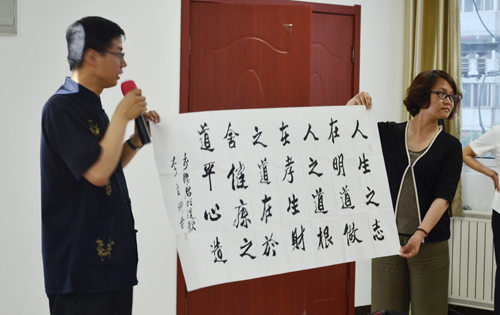 人生之志
在明道做
人之道根
在孝生財
之道在於
舍催療之
道平心造